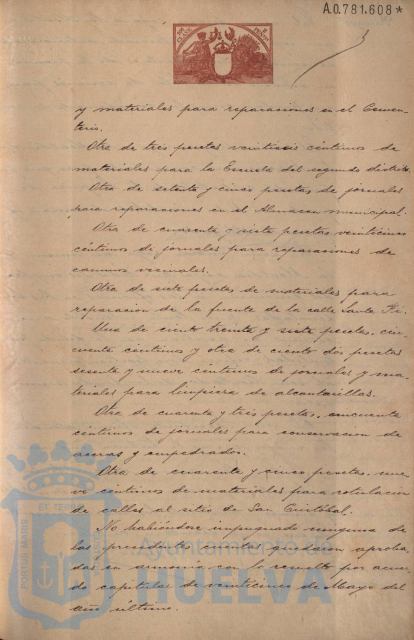 A.0.781.608*
y materiales para reparaciones en el Cemen-
terio.
Otra de tres pesetas veintiseis céntimos de
materiales para la Escuela del segundo distrito.
Otra de setenta y cinco pesetas de jornales
para reparaciones en el Almacen municipal.
Otra de cuarenta y siete pesetas veinticinco
céntimos de jornales para reparaciones de
caminos vecinales.
Otra de siete pesetas de materiales para
reparacion de la fuente de la calle Santa Fé.
Una de ciento treinta y siete pesetas, cin-
cuenta céntimos y otra de ciento dos pesetas
sesenta y nueve céntimos de jornales y ma-
teriales para limpieza de alcantarillas.
Otra de cuarenta y tres pesetas, cincuenta
céntimos de jornales para conservacion de
aceras y empedrados.
Otra de cuarenta y cinco pesetas, nue-
ve céntimos de materiales para rotulacion
de calles al sitio de San Cristóbal.
No habiéndose impugnado ninguna de
las precedentes cuentas quedaron aproba-
das en armonia con lo resuelto por acuer-
do capitular de veinticinco de Mayo del
año último.
Ayuntamiento de
HUELVA
PORTUS MARIS
ET TERRAE